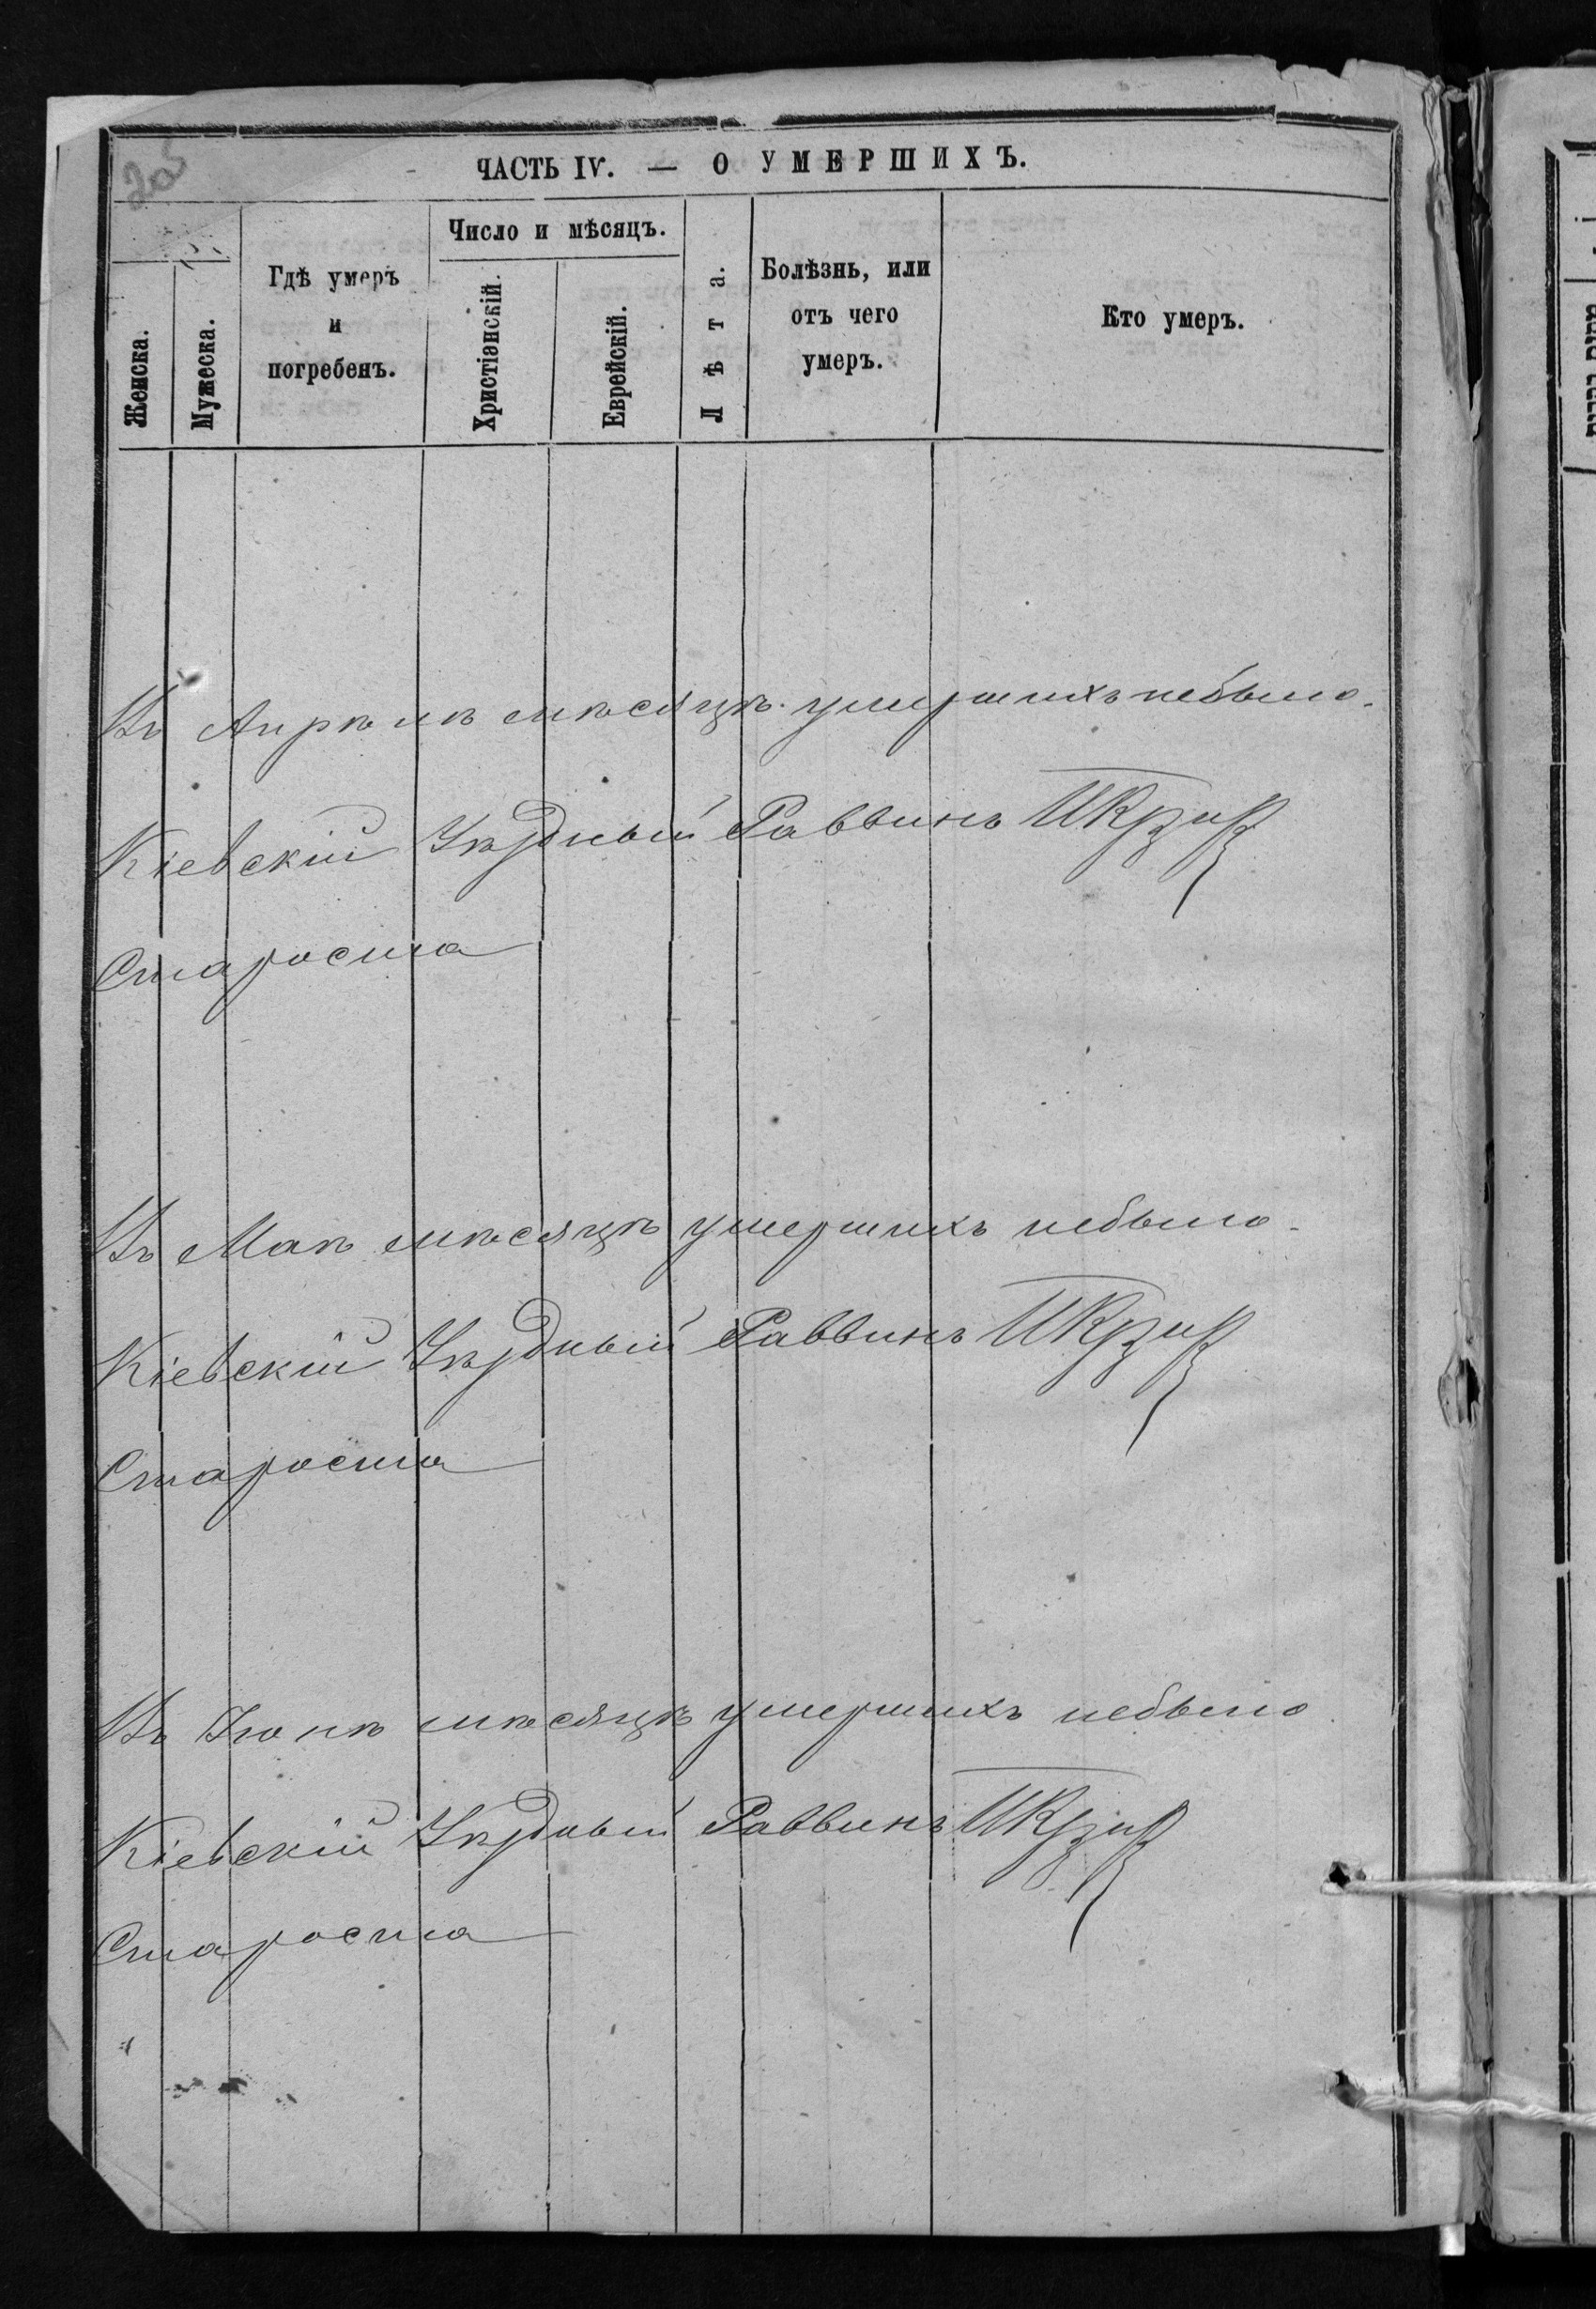 ЧАСТЬ IV. — О УМЕРШИХЪ.
Женска.
Мужеска.
Гдѣ умеръ
и
погребенъ.
Число и мѣсяцъ.
Христіанскій.
Еврейскій.
Лѣта.
Болѣзнь, или
отъ чего
умеръ.
Кто умеръ.
Въ Апрѣлѣ мѣсяцѣ умершихъ небыло.
Кіевскій Уѣздный Раввинъ
Староста
Въ Маѣ мѣсяцѣ умершихъ небыло.
Кіевскій Уѣздный Раввинъ
Староста
Въ Іюнѣ мѣсяцѣ умершихъ небыло
Кіевскій Уѣздный Раввинъ
Староста